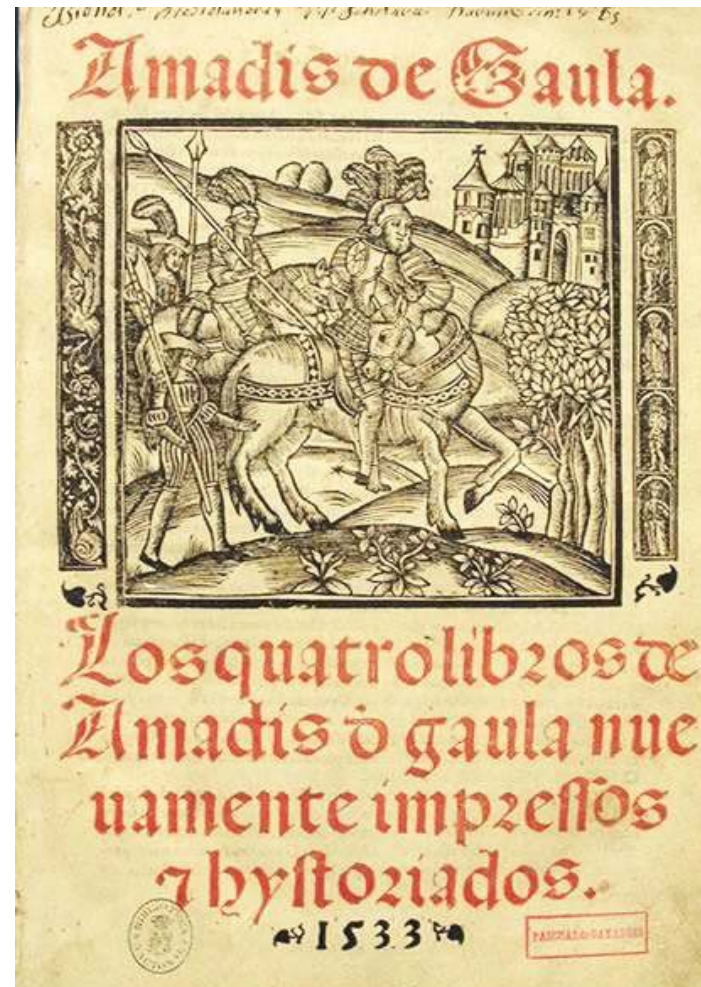 Amadis de Gaula.
Los quatro libros de
Amadis đ gaula nue
uamente impressos
⁊ hystoriados.
1533
PASCUAL de GAYANGOS